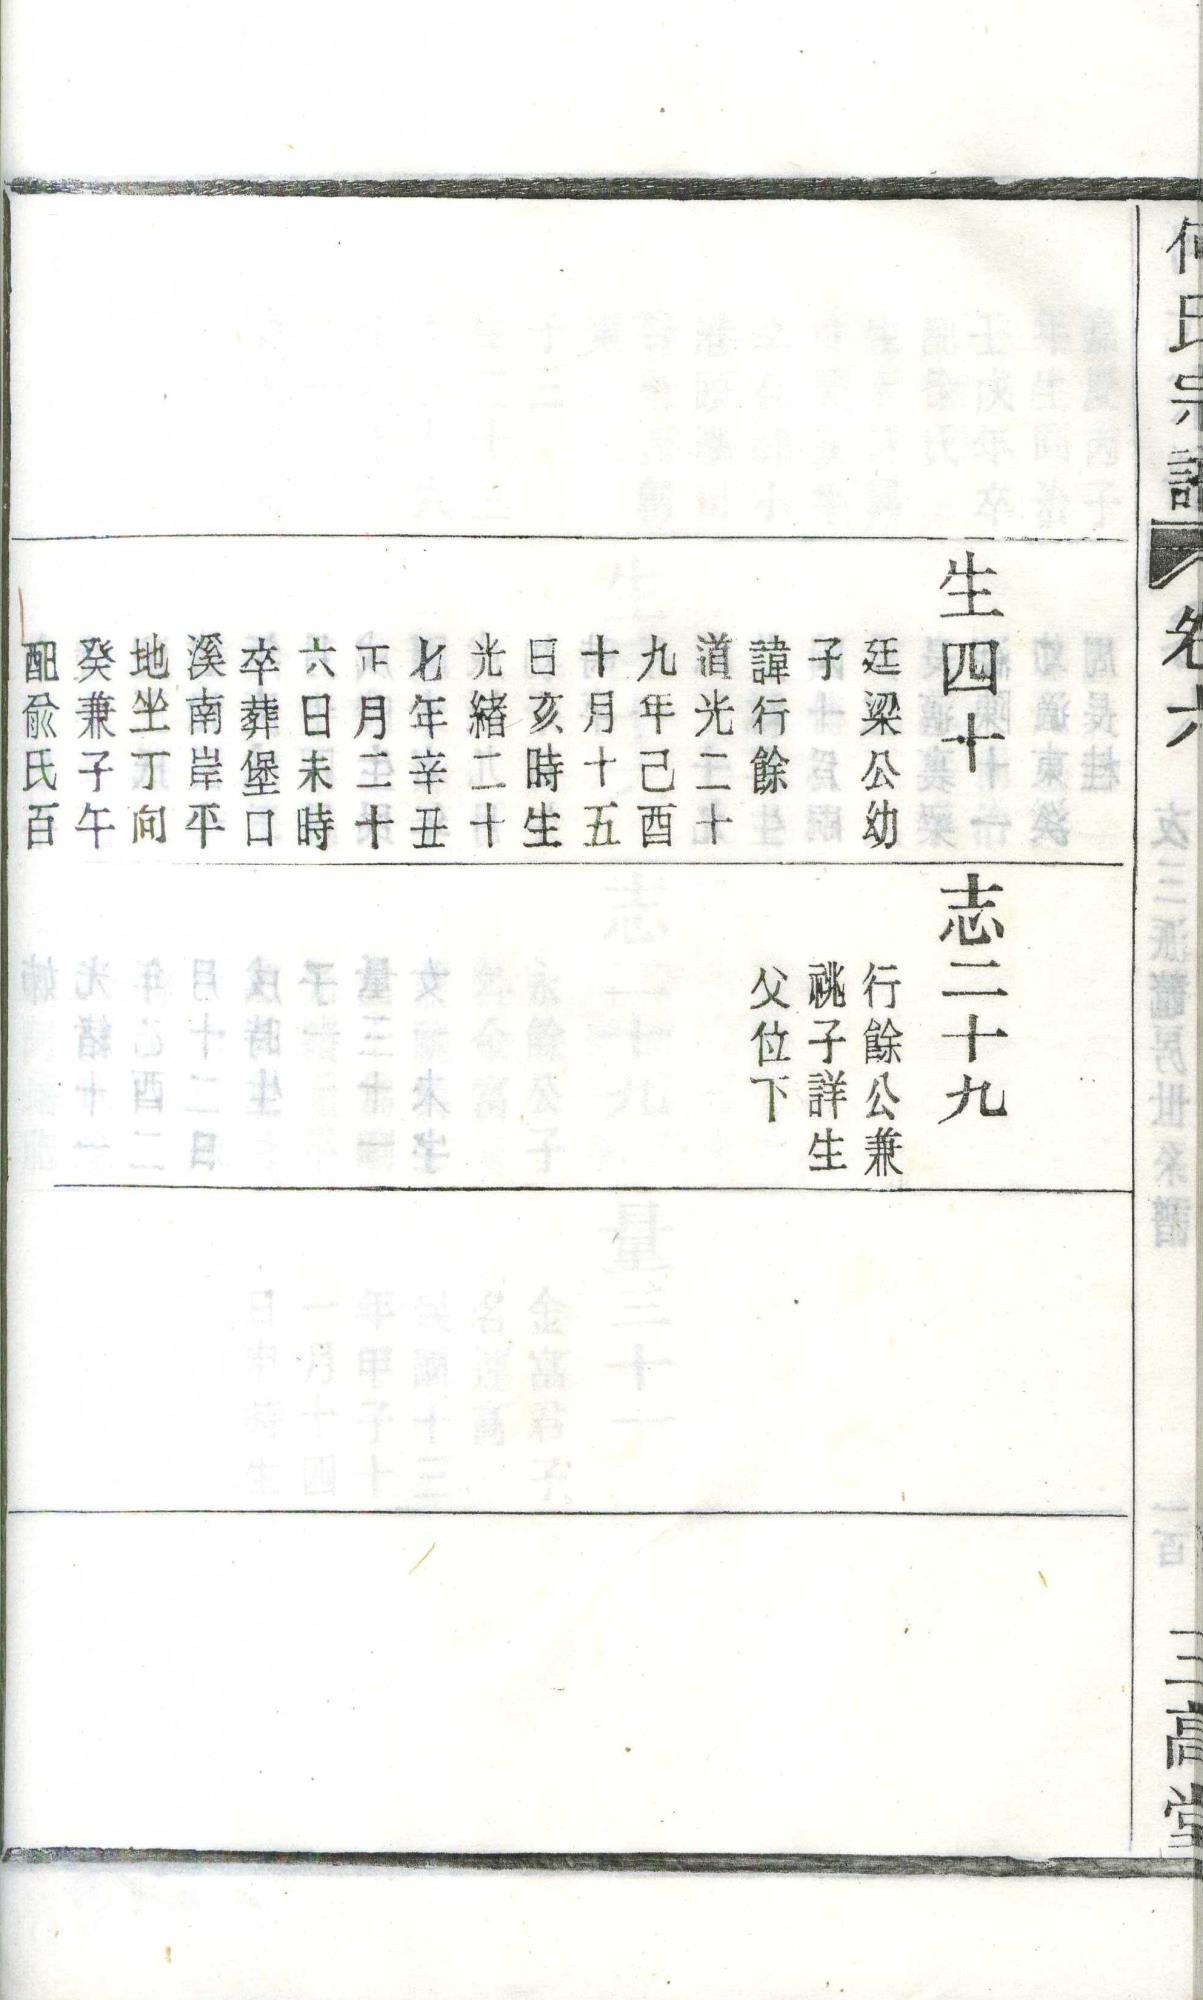 何氏宗譜
卷六
三高堂
生四十
廷梁公幼
子
諱行餘
道光二十
九年己酉
十月十五
日亥時生
光緒二十
七年辛丑
正月二十
六日未時
卒葬堡口
溪南岸平
地坐丁向
癸兼子午
配俞氏百
志二十九
行餘公兼
祧子詳生
父位下